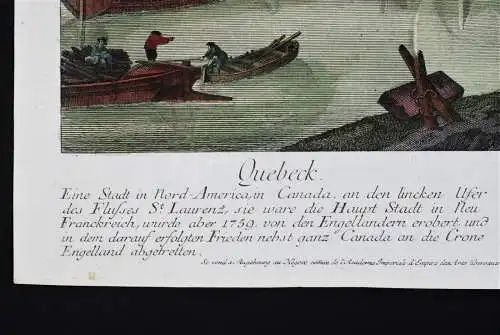 Quebeck.
Eine Stadt in Nord-America, in Canada, an den lincken Ufer
des Flusses St. Laurenz, sie ware die Haupt Stadt in Neu
Franckreich, wurde aber 1759. von den Engelländern erobert, und
in dem darauf erfolgten Frieden nebst ganz Canada an die Crone
Engelland abgetretten.
Se vend à Augsbourg au Négoce comun de l'Academie Imperiale d'Empire des Arts libereaux